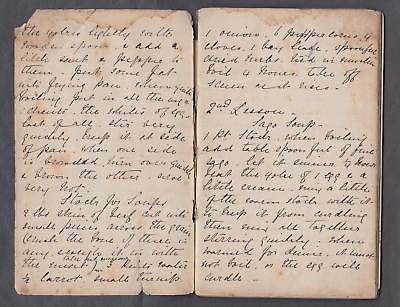 the yolks lightly with
wooden spoon & add a
little salt & pepper to
them - put some fat
into frying pan, when quite
boiling pour in all the ingre-
dients, the whites of egg
last of all, stir very
quickly, keep it at side
of pan when one side
is browned turn over quickly
& brown the other - serve
very hot.
Stock for Soups
2 lbs shin of beef cut into
small pieces across the grain
(crush the bone if there is
any, & put it in with
the meat) 2 quarts water
½ carrot, small turnip
1 onion, 6 peppercorns, 4
cloves, 1 bay leaf, spoonful
dried herbs tied in muslin
boil 4 hours, take off
scum as it rises -
2nd Lesson -
Sago Soup -
1 pt Stock, when boiling
add table spoonful of fine
sago, let it simmer ½ hour
beat the yolk of 1 egg & a
little cream, mix a little
of the warm stock with it
to keep it from curdling
then mix all together
stirring quickly; when
warmed for dinner, it must
not boil, or the egg will
curdle -